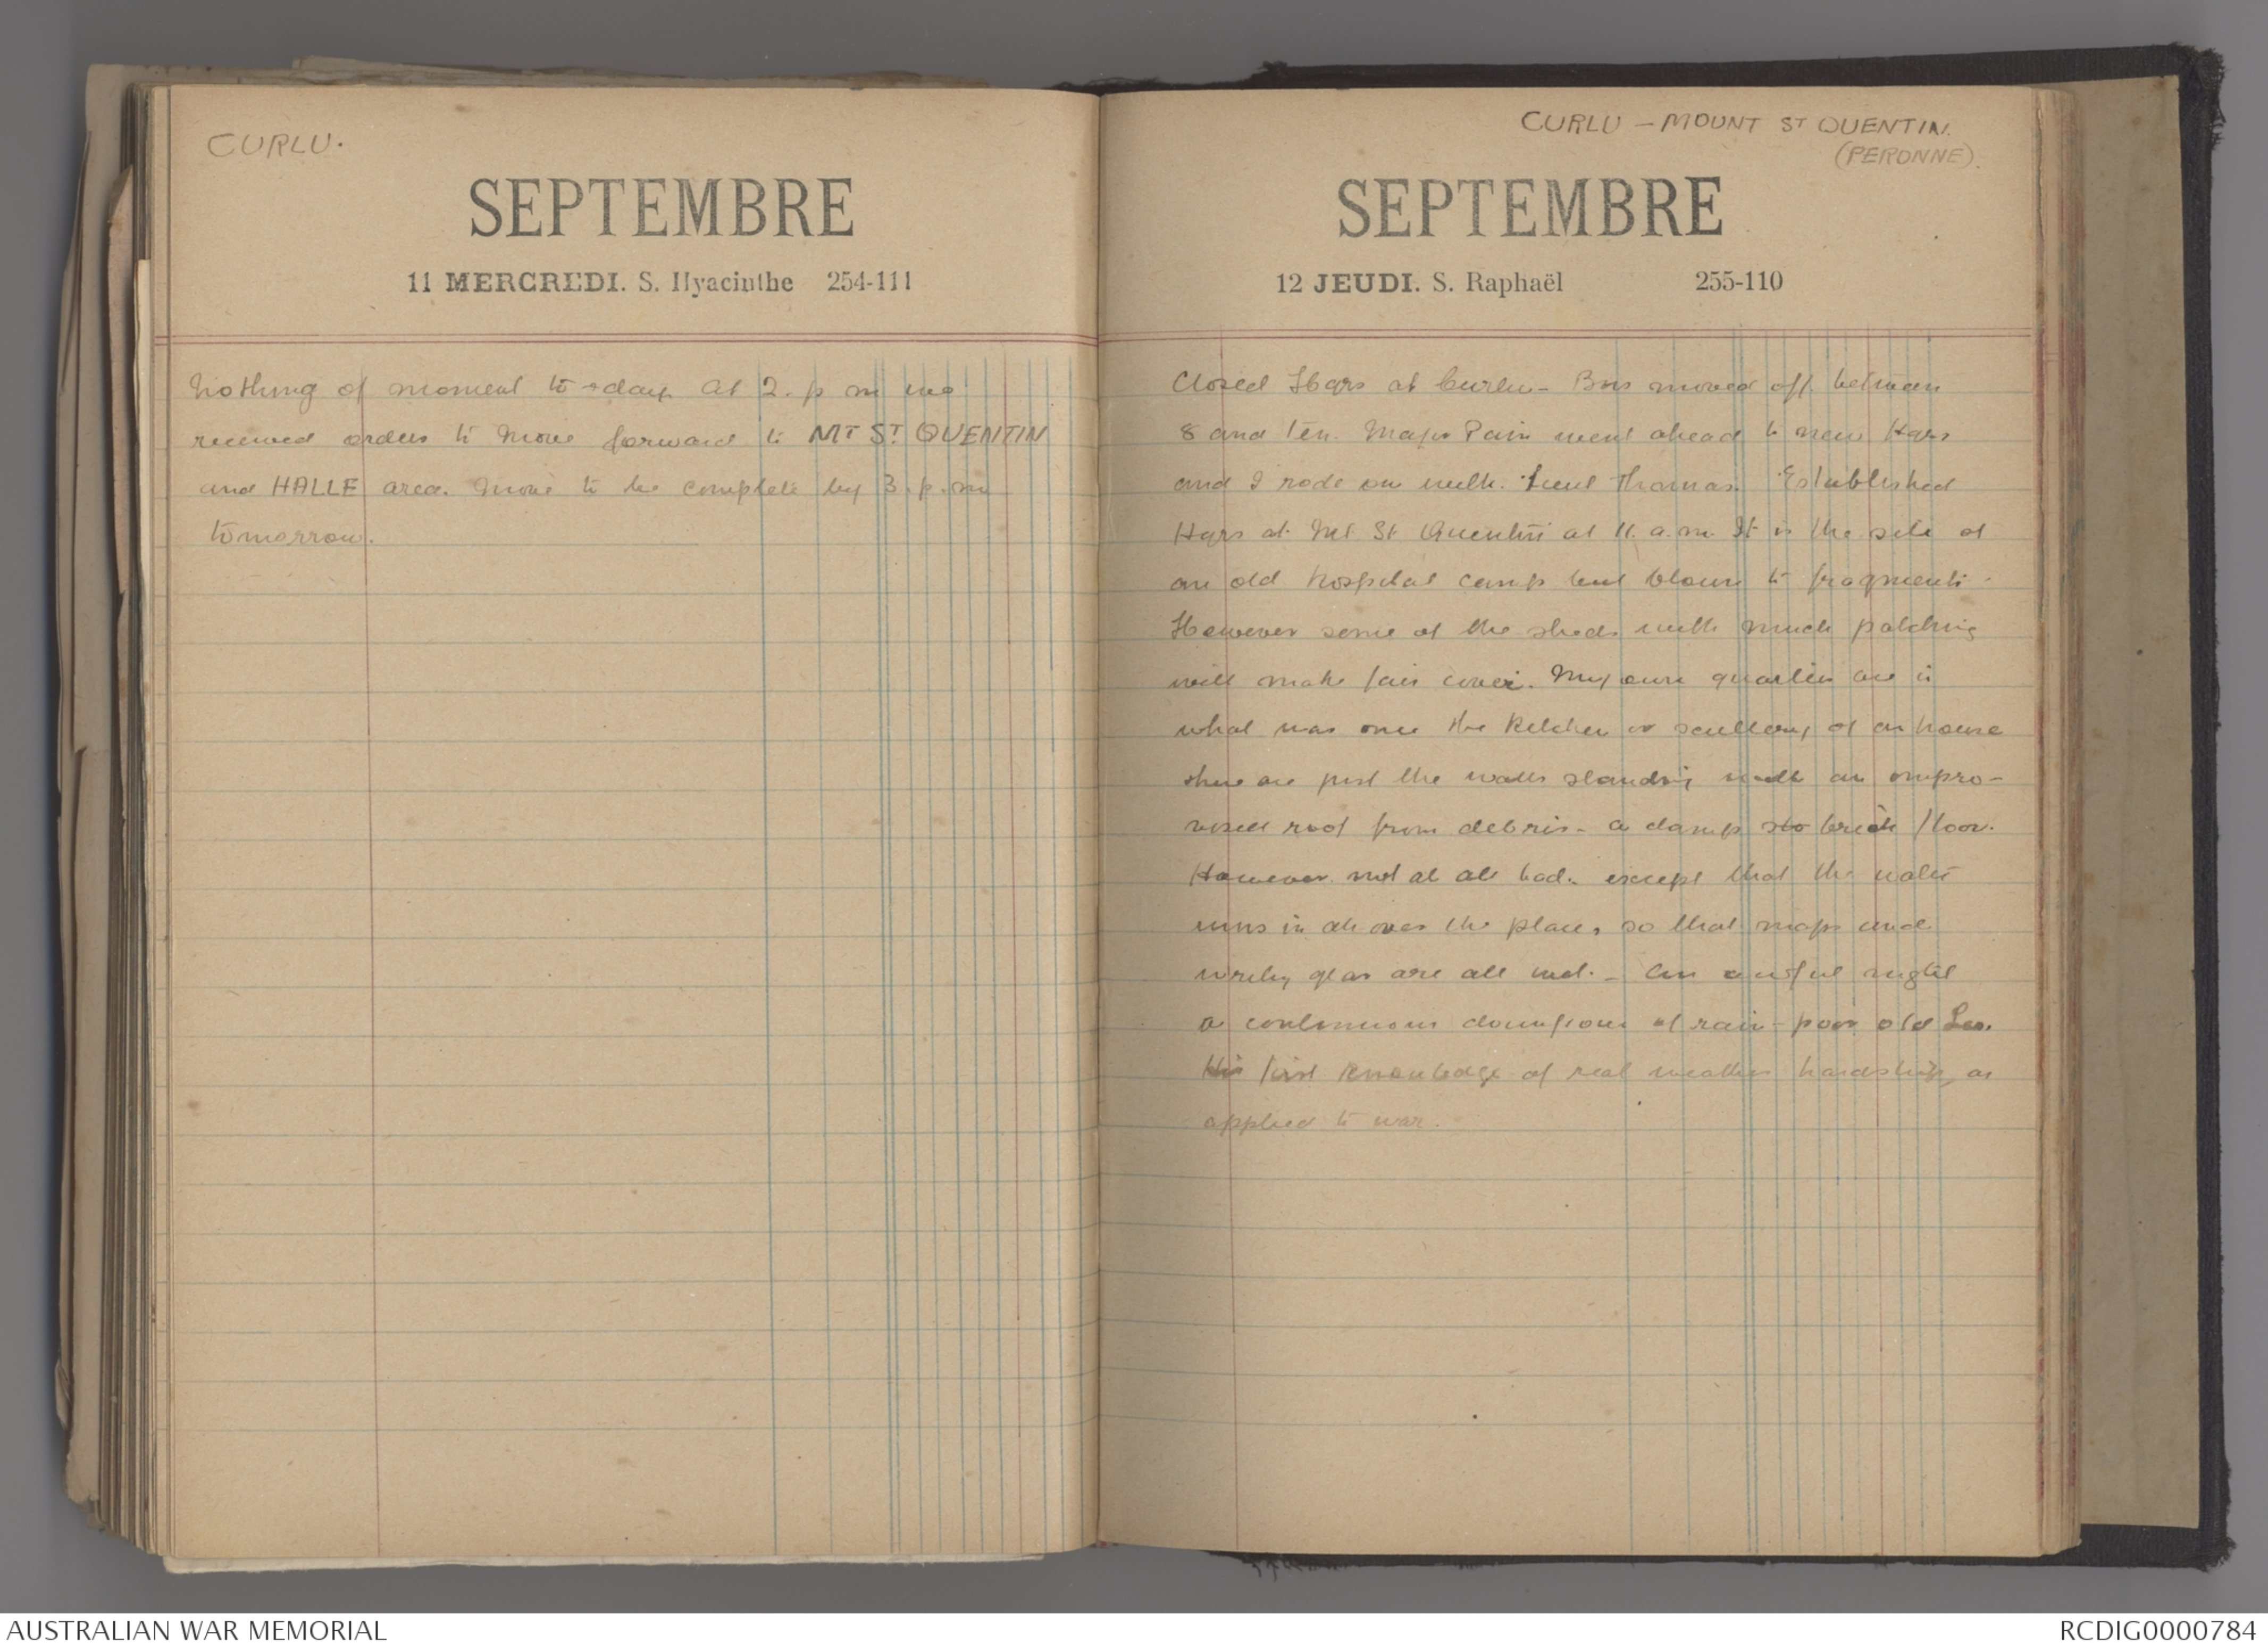 CURLU.
SEPTEMBRE
11 MERCREDI. S. Hyacinthe 254-111
Nothing of moment to-day. At 2. p m we
received orders to move forward to MT ST QUENTIN
and HALLE area. Move to be complete by 3. p. m
tomorrow.
CURLU - MOUNT ST QUENTIN.
(PERONNE).
SEPTEMBRE
12 JEUDI. S. Raphaël 255-110
Closed Hqrs at Curlu - Bns moved off between
8 and ten. Major Pain went ahead to new Hqrs
and I rode on with Lieut Thomas. Established
Hqrs at Mt St Quentin at 11. a.m. It is the site of
an old hospital camp but blown to fragments.
However some of the sheds with much patching
will make fair cover. My own quarters are in
what was once the kitchen or scullery of an house
there are just the walls standing with an impro-
vised roof from debris - a damp sto brick floor.
However not at all bad. except that the water
runs in all over the place, so that maps and
writing gear are all wet. - An awful night
a continuous downpour of rain - poor old Leo.
His first knowledge of real weather hardship, as
applied to war.
AUSTRALIAN WAR MEMORIAL
RCDIG0000784